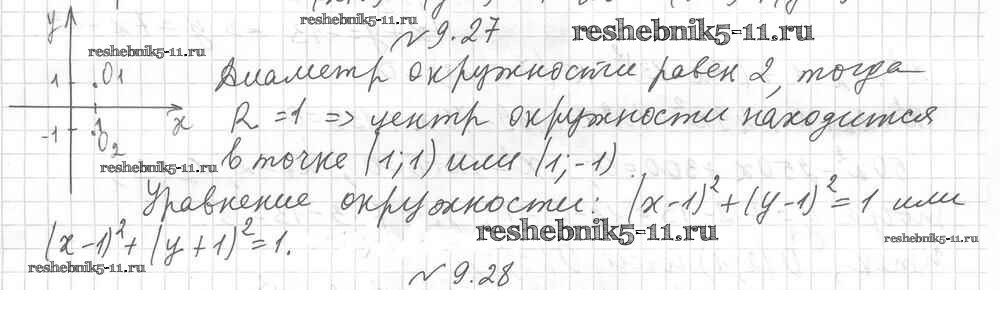 reshebnik5-11.ru
№ 9.27 reshebnik5-11.ru
y
reshebnik5-11.ru
1 O1
Диаметр окружности равен 2, тогда
1 x
R = 1 => центр окружности находится
-1 O2
reshebnik5-11.ru
в точке (1; 1) или (1; -1)
Уравнение окружности: (x-1)²+(y-1)²=1 или
(x-1)²+(y+1)²=1. reshebnik5-11.ru reshebnik5-11.ru
reshebnik5-11.ru
№ 9.28